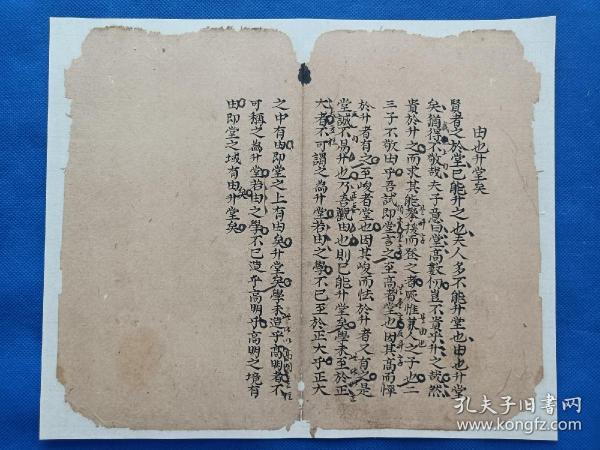 由也升堂矣
賢者之於堂已能升之也夫人多不能升堂也由也升堂
矣猶得不敬哉夫子意曰堂高數仞豈不貴於升之哉然
貴於升之而求其能攀援而登之者厥惟某人之子也二
三子不敬由乎吾試即堂言之至高者堂也因其高而憚
於升者有之至峻者堂也因其峻而怯於升者又有之是
堂誠不易升也乃吾觀由也則已能升堂矣學未至於正
大者不可謂之為升堂若由之學不已至於正大乎正大
之中有由即堂之上有由矣升堂矣學未造乎高明者不
可稱之為升堂若由之學不已造乎高明乎高明之境有
由即堂之域有由升堂矣
孔夫子旧书网
www.kongfz.com